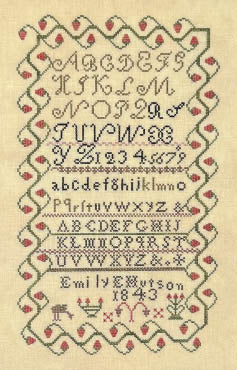 ABCDEFG
HIKLM
NOPQRS
TUVWX
YZ123456789
abcdefghijklmno
pqrſstuvwxyz&
ABCDEFGHIJ
KLMNOPQRST
UVWXYZ&
Emily E Hutson
1843